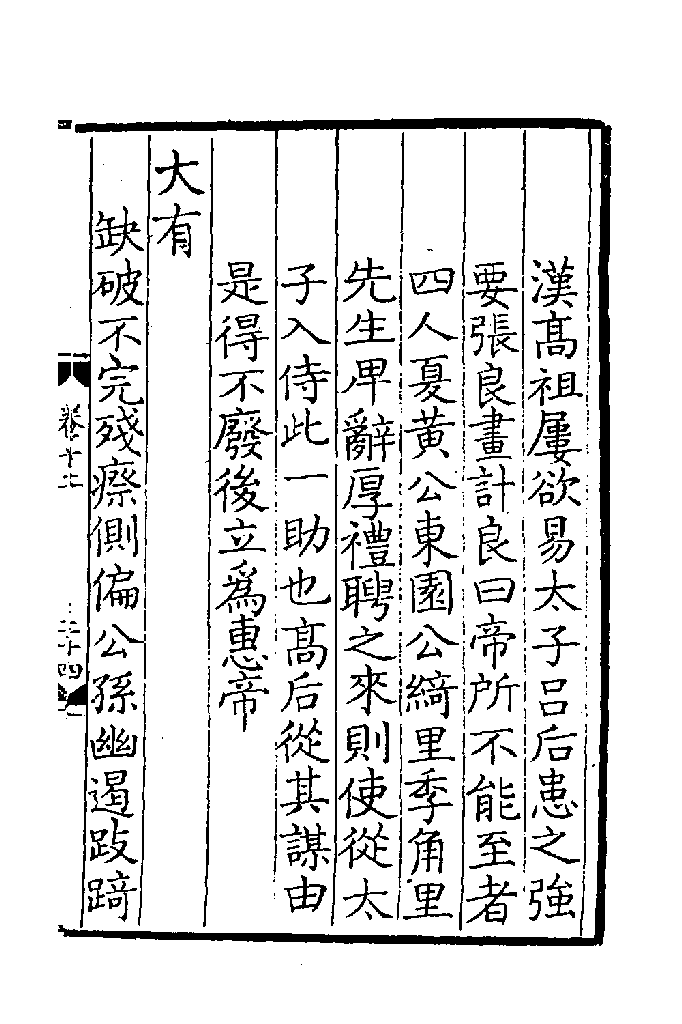 漢髙祖屢欲易太子吕后患之強
要張良畫計良曰帝所不能至者
四人夏黄公東園公綺里季角里
先生卑辭厚禮聘之來則使從太
子入侍此一助也髙后從其謀由
是得不廢後立爲惠帝
大有
缺破不完殘瘵側偏公孫幽遏跂踦
卷十七
二十四